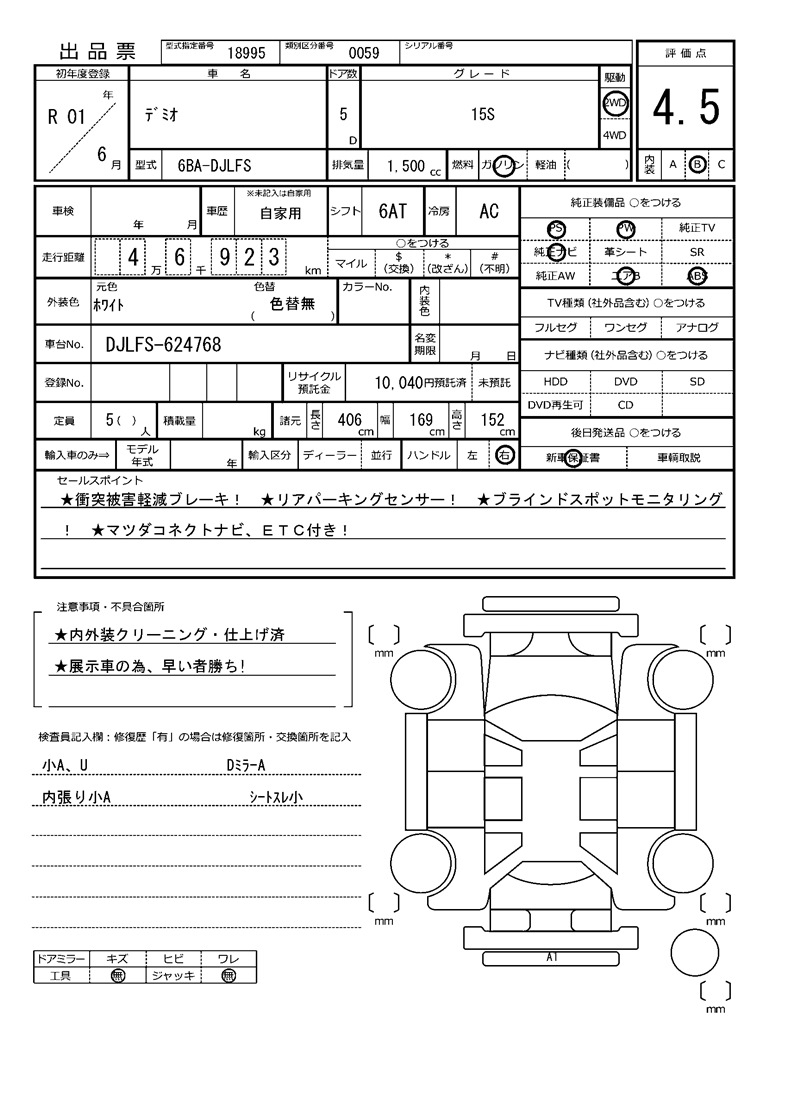 出品票 型式指定番号 18995 類別区分番号 0059 シリアル番号
評価点
初年度登録 車名 ドア数 グレード 駆動
R 01 年 6 月 ﾃﾞﾐｵ 5 D 15S 2WD 4WD
4.5
型式 6BA-DJLFS 排気量 1,500 cc 燃料 ガソリン 軽油 ( )
内装 A B C
車検 年 月 車歴 ※未記入は自家用 自家用 シフト 6AT 冷房 AC
純正装備品 ○をつける
PS PW 純正TV
走行距離 4 万 6 千 9 2 3 km
○をつける
マイル $(交換) *(改ざん) #(不明)
純正ナビ 革シート SR
純正AW エアB ABS
外装色 元色 ﾎﾜｲﾄ 色替 色替無 ( ) カラーNo. 内装色
TV種類(社外品含む) ○をつける
フルセグ ワンセグ アナログ
車台No. DJLFS-624768 名変期限 月 日
ナビ種類(社外品含む) ○をつける
登録No. リサイクル預託金 10,040円預託済 未預託
HDD DVD SD
DVD再生可 CD
定員 5( ) 人 積載量 kg 諸元 長さ 406 cm 幅 169 cm 高さ 152 cm
後日発送品 ○をつける
輸入車のみ⇒ モデル年式 年 輸入区分 ディーラー 並行 ハンドル 左 右
新車保証書 車輌取説
セールスポイント
★衝突被害軽減ブレーキ! ★リアパーキングセンサー! ★ブラインドスポットモニタリング
! ★マツダコネクトナビ、ETC付き!
注意事項・不具合箇所
★内外装クリーニング・仕上げ済
★展示車の為、早い者勝ち!
検査員記入欄:修復歴「有」の場合は修復箇所・交換箇所を記入
小A、U DﾐﾗｰA
内張り小A ｼｰﾄｽﾚ小
mm mm
mm mm
A1
mm
ドアミラー キズ ヒビ ワレ
工具 無 ジャッキ 無